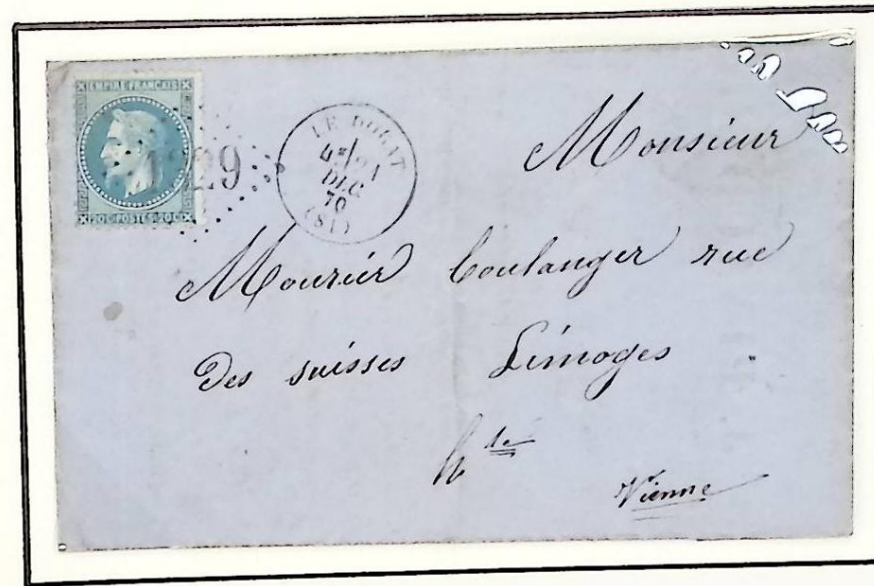 EMPIRE FRANÇAIS
20 C POSTES 20 C
1329
LE DORAT
4E/21
DEC.
70
(81)
Monsieur
Mourier boulanger rue
Des suisses Limoges
hte
Vienne